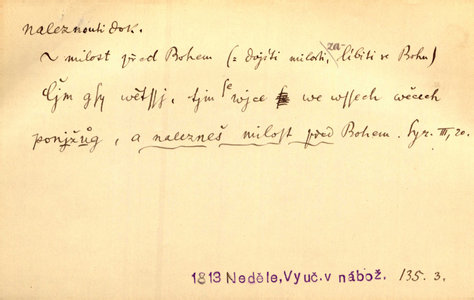 naleznouti dok.
~ milost před Bohem (= dojíti milosti, za líbiti se Bohu)
Čjm gsy wětssj, tjm se wjce we wssech wěcech
ponjžůg, a nalezneš milost před Bohem. Syr. III, 20.
1813 Neděle, Vyuč. v nábož. 135. 3.